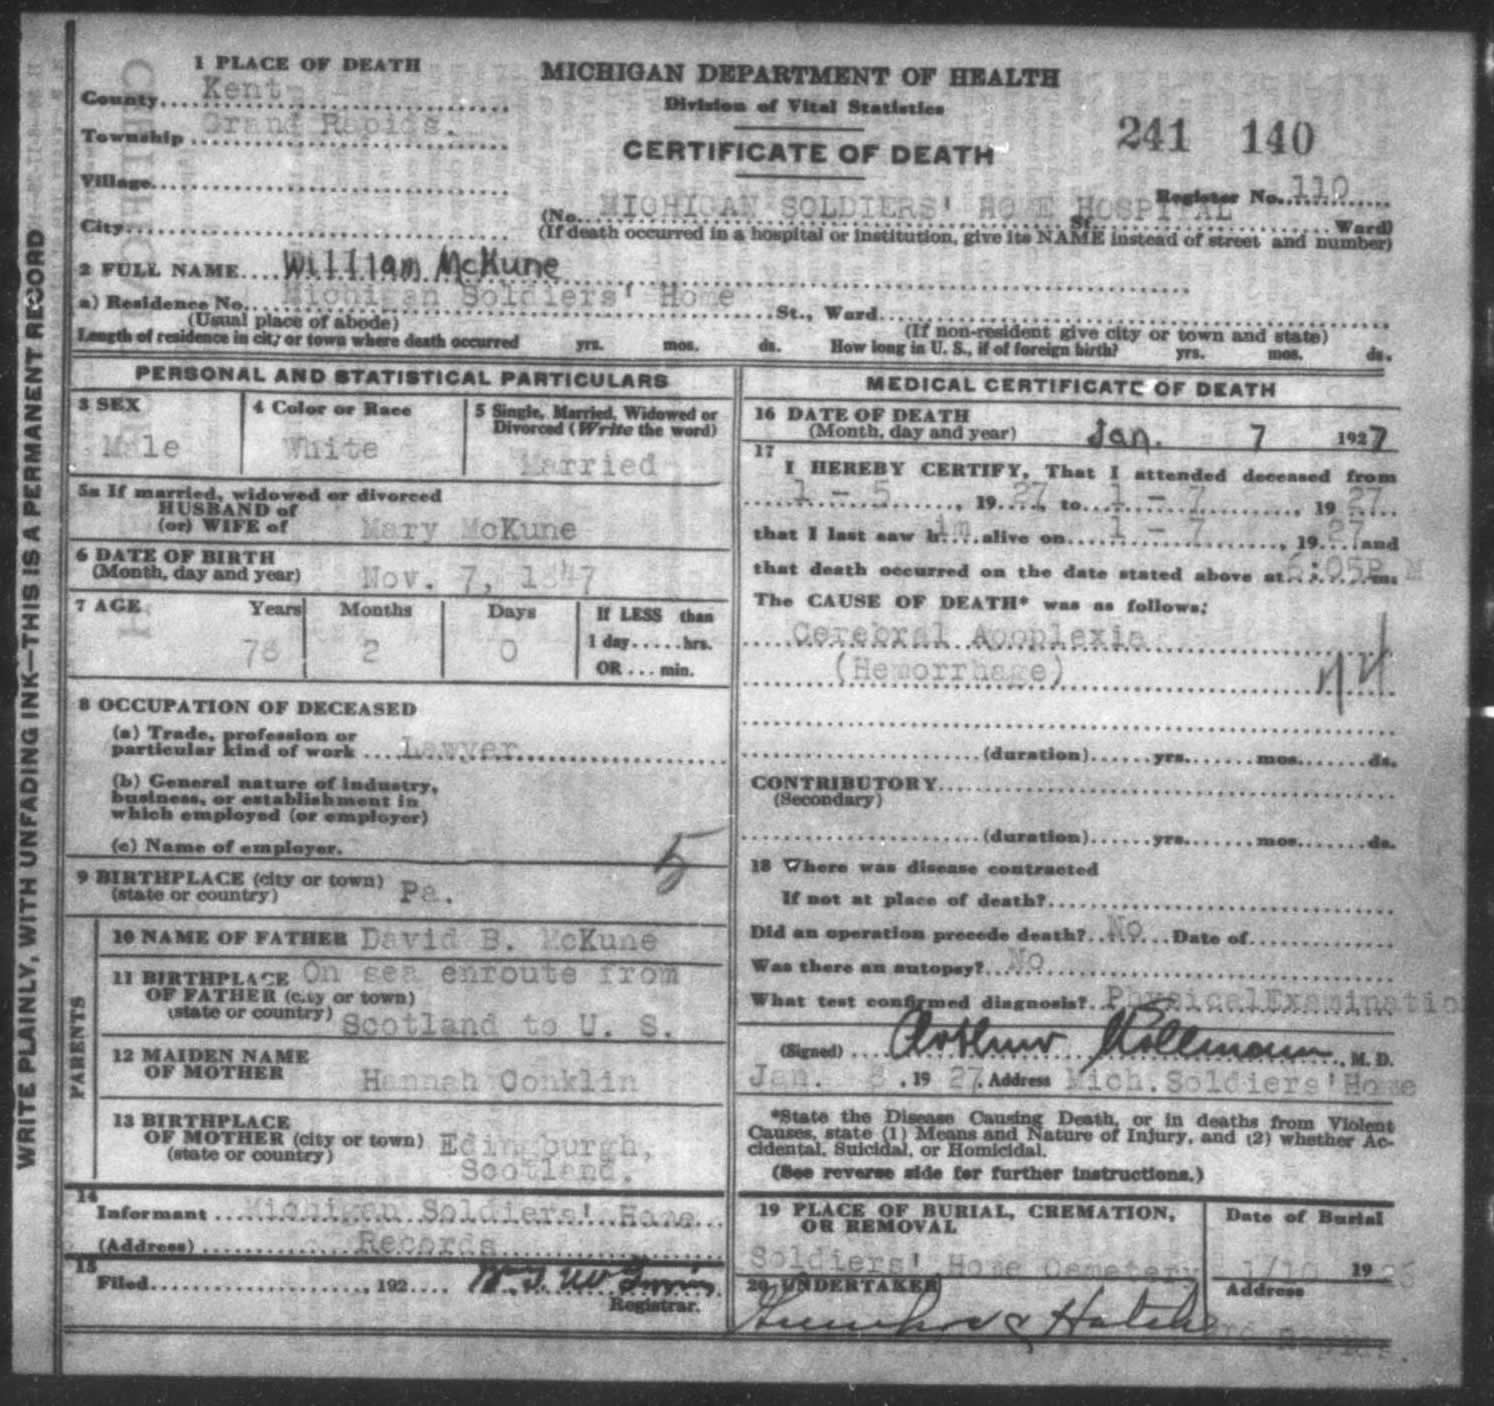 1 PLACE OF DEATH
County Kent
Township Grand Rapids.
Village
City
MICHIGAN DEPARTMENT OF HEALTH
Division of Vital Statistics
CERTIFICATE OF DEATH
241 140
Register No. 110
(No. MICHIGAN SOLDIERS' HOME HOSPITAL St. Ward)
(If death occurred in a hospital or institution, give its NAME instead of street and number)
2 FULL NAME William McKune
a) Residence No. Michigan Soldiers' Home St., Ward
(Usual place of abode) (If non-resident give city or town and state)
Length of residence in city or town where death occurred yrs. mos. ds. How long in U. S., if of foreign birth? yrs. mos. ds.
PERSONAL AND STATISTICAL PARTICULARS
3 SEX
Male
4 Color or Race
White
5 Single, Married, Widowed or
Divorced (Write the word)
Married
5a If married, widowed or divorced
HUSBAND of
(or) WIFE of Mary McKune
6 DATE OF BIRTH
(Month, day and year) Nov. 7, 1847
7 AGE Years Months Days If LESS than
1 day.....hrs.
2 0
OR ... min.
8 OCCUPATION OF DECEASED
(a) Trade, profession or
particular kind of work Lawyer
(b) General nature of industry,
business, or establishment in
which employed (or employer)
(c) Name of employer.
5
9 BIRTHPLACE (city or town)
(state or country) Pa.
PARENTS
10 NAME OF FATHER David B. McKune
11 BIRTHPLACE On sea enroute from
OF FATHER (city or town)
(state or country) Scotland to U. S.
12 MAIDEN NAME
OF MOTHER Hannah Conklin
13 BIRTHPLACE
OF MOTHER (city or town) Edingburgh,
(state or country) Scotland.
14
Informant Michigan Soldiers' Home
(Address) Records
15
Filed , 192
Registrar.
MEDICAL CERTIFICATE OF DEATH
16 DATE OF DEATH
(Month, day and year) Jan. 7 1927
17
I HEREBY CERTIFY, That I attended deceased from
1 - 5 , 19 27, to 1 - 7 , 19 27
that I last saw him alive on 1 - 7 , 19 27 and
that death occurred on the date stated above at 6:05P m. M
The CAUSE OF DEATH* was as follows:
Cerebral Apoplexia
(Hemorrhage)
(duration) yrs. mos. ds.
CONTRIBUTORY
(Secondary)
(duration) yrs. mos. ds.
18 Where was disease contracted
If not at place of death?
Did an operation precede death? No Date of
Was there an autopsy? No
What test confirmed diagnosis? Physical Examinatio
(Signed) Arthur , M. D.
Jan. 8 , 19 27. Address Mich. Soldiers' Home
*State the Disease Causing Death, or in deaths from Violent
Causes, state (1) Means and Nature of Injury, and (2) whether Ac-
cidental, Suicidal, or Homicidal.
(See reverse side for further instructions.)
19 PLACE OF BURIAL, CREMATION,
OR REMOVAL
Soldiers' Home Cemetery
Date of Burial
1/10 19
20 UNDERTAKER
Address
WRITE PLAINLY, WITH UNFADING INK—THIS IS A PERMANENT RECORD